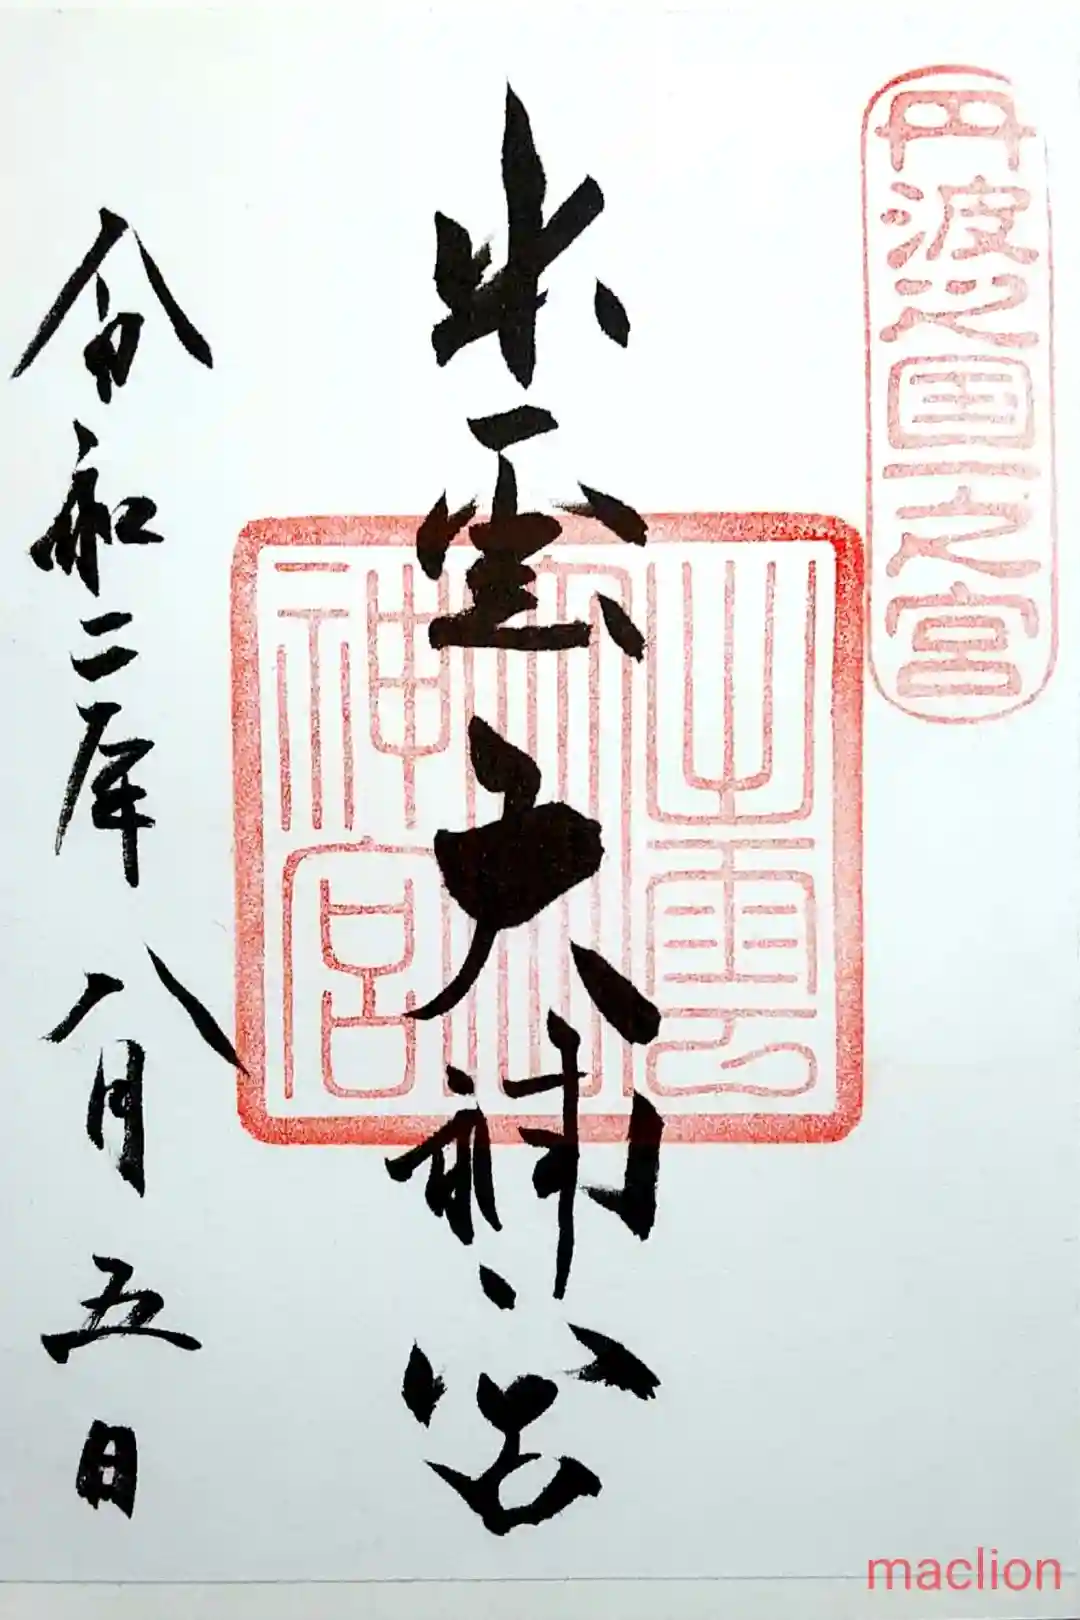 丹波之国一之宮
出雲大神宮
出雲大神宮
令和二年八月五日
maclion